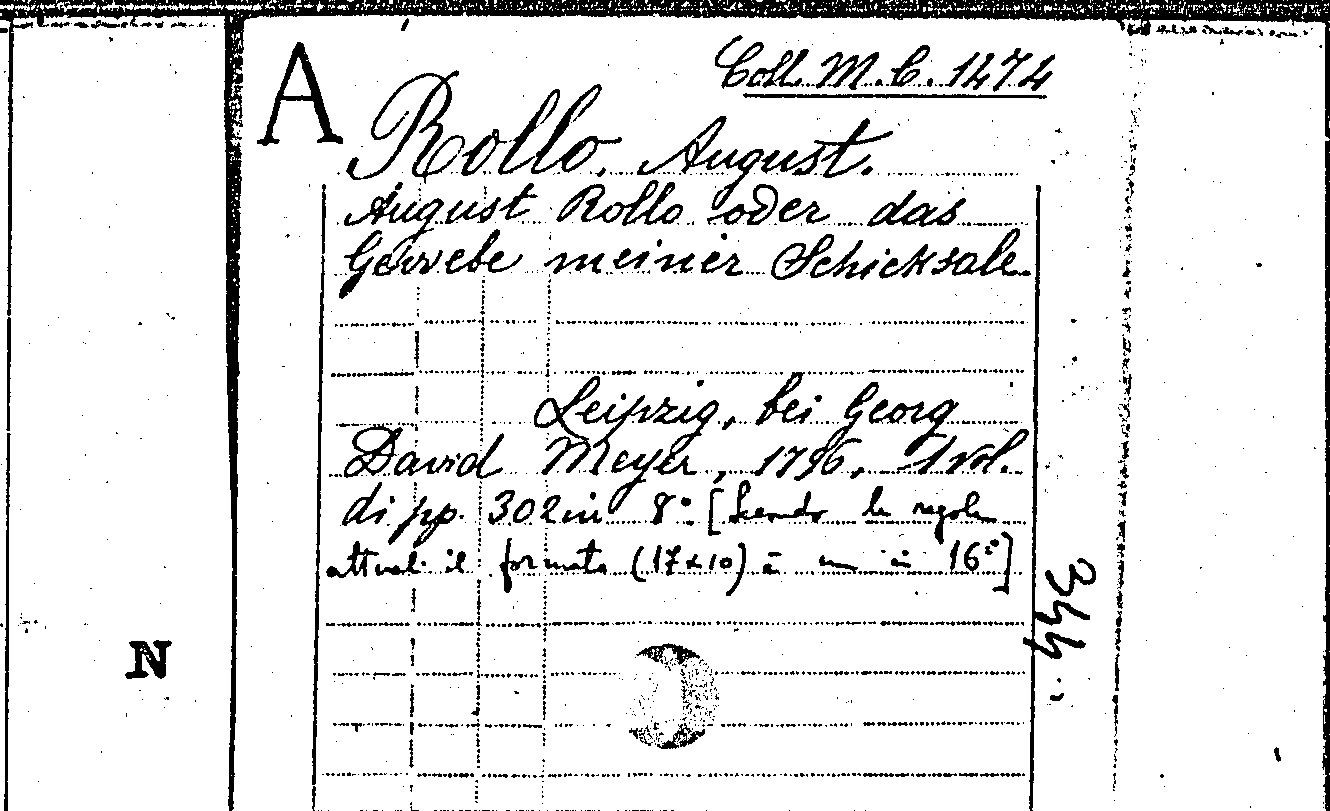 A
Coll. M.C. 1474
Rollo, August.
August Rollo oder das
Gewebe meiner Schicksale.
Leipzig, bei Georg
David Meyer, 1796, 1 vol.
di pp. 302 in 8° [Secondo le regole
attuali il formato (17x10) è in 16°]
344
N